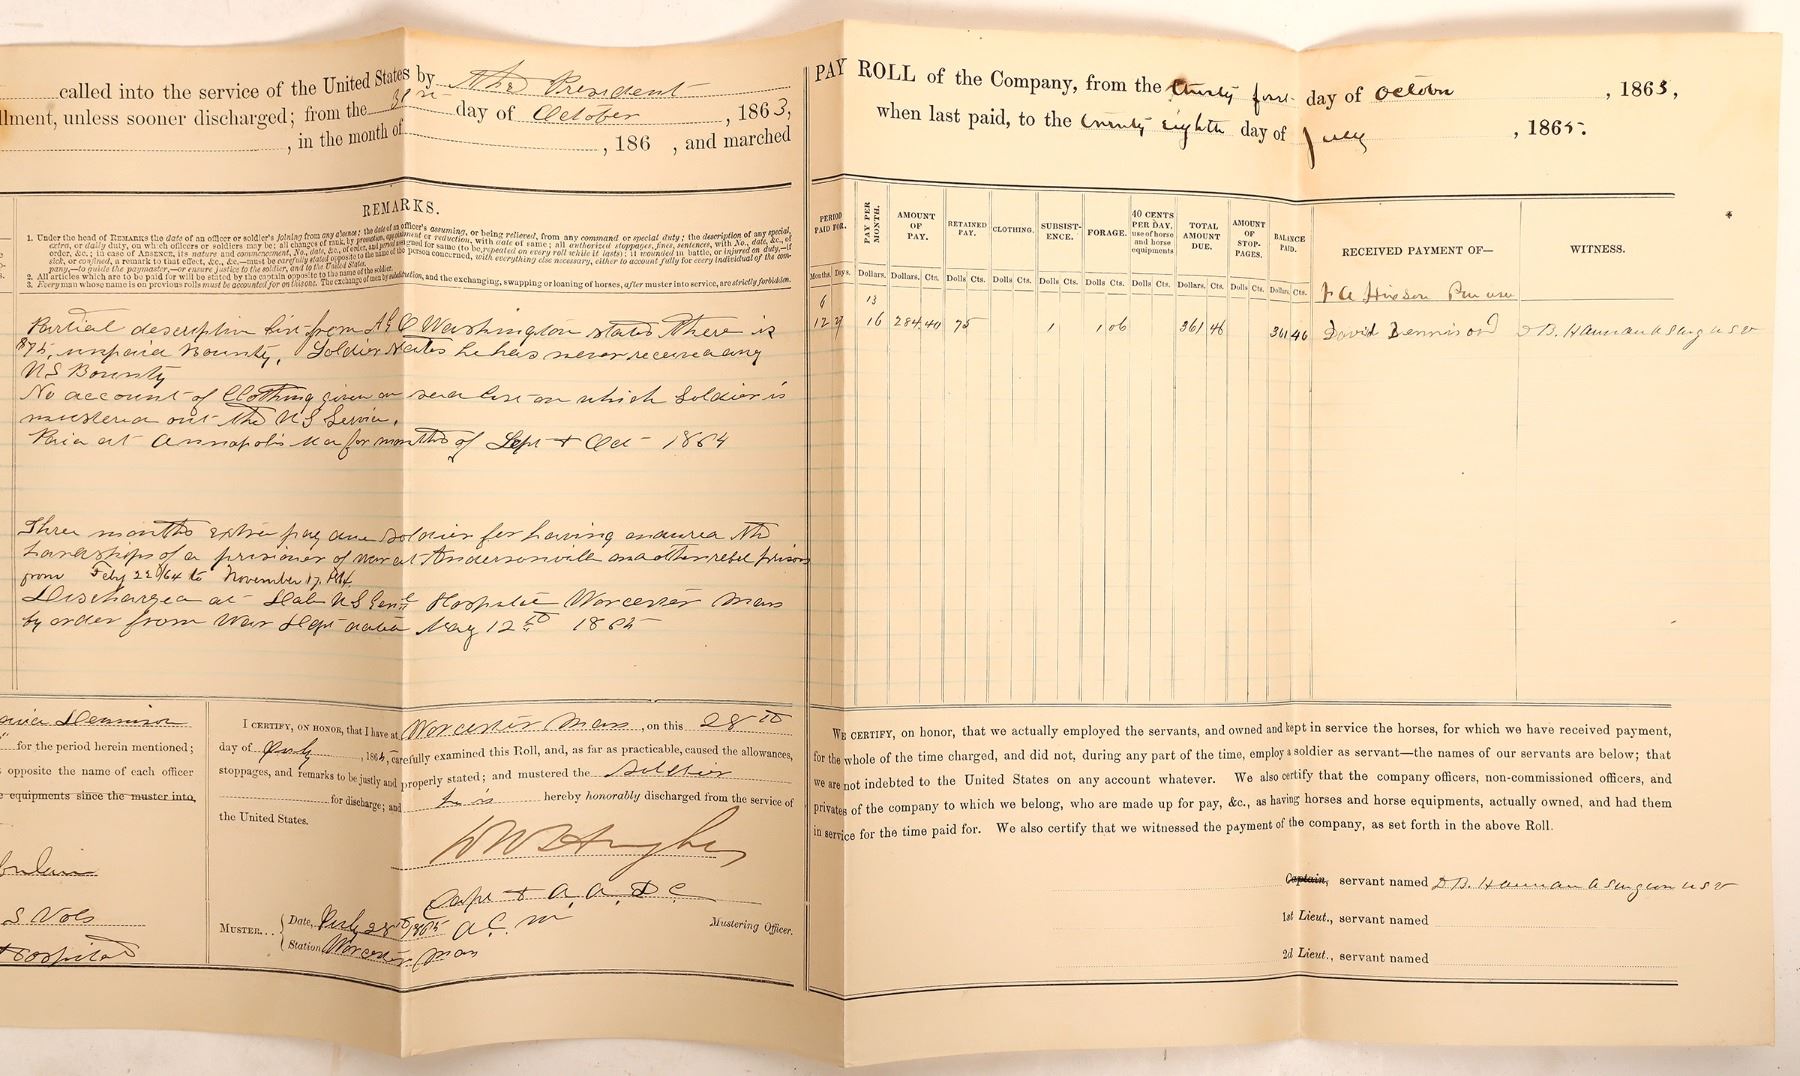 called into the service of the United States by The President
llment, unless sooner discharged; from the 31st day of October, 1863,
, in the month of , 186 , and marched
REMARKS.
1. Under the head of REMARKS the date of an officer or soldier's joining from any absence; the date of an officer's assuming, or being relieved, from any command or special duty; the description of any special,
extra, or daily duty, on which officers or soldiers may be; all changes of rank, by promotion, appointment or reduction, with date of same; all authorized stoppages, fines, sentences, with No., date, &c., of
order, &c.; in case of ABSENCE, its nature and commencement, No., date, &c., of order, and period assigned for same (to be repeated on every roll while it lasts); if wounded in battle, or injured on duty,—if
sick, or confined, a remark to that effect, &c., &c.—must be carefully stated opposite to the name of the person concerned, with everything else necessary, either to account fully for every individual of the com-
pany,—to guide the paymaster,—or ensure justice to the soldier, and to the United States.
2. All articles which are to be paid for will be stated by the captain opposite to the name of the soldier.
3. Every man whose name is on previous rolls must be accounted for on this one. The exchange of men by substitution, and the exchanging, swapping or loaning of horses, after muster into service, are strictly forbidden.
Partial descriptive list from A G O Washington states there is
$75, unpaid Bounty, Soldier states he has never received any
US Bounty
No account of Clothing given on said list on which Soldier is
mustered out the US Service.
Paid at Annapolis Md for months of Sept & Oct 1864
Three months extra pay due soldier for having endured the
hardships of a prisoner of war at Andersonville and other rebel prisons
from Feby 22d/64 to November 17, 1864
Discharged at Dale US Genl Hospital Worcester Mass
by order from War Dept dated May 12th 1865
avid Dennison
for the period herein mentioned;
opposite the name of each officer
e equipments since the muster into,
S Vols
Hospital
I CERTIFY, ON HONOR, that I have at Worcester Mass, on this 28th
day of July, 1865, carefully examined this Roll, and, as far as practicable, caused the allowances,
stoppages, and remarks to be justly and properly stated; and mustered the soldier
for discharge; and he is hereby honorably discharged from the service of
the United States.
Capt & A. A. D. C.
A. C. M
Mustering Officer.
MUSTER... Date, July 28th 1865
Station Worcester Mass
PAY ROLL of the Company, from the thirty first day of October, 1863,
when last paid, to the twenty eighth day of July, 1865.
PERIOD PAID FOR. PAY PER MONTH. AMOUNT OF PAY. RETAINED PAY. CLOTHING. SUBSISTENCE. FORAGE. 40 CENTS PER DAY. use of horse and horse equipments TOTAL AMOUNT DUE. AMOUNT OF STOPPAGES. BALANCE PAID. RECEIVED PAYMENT OF— WITNESS.
Months. Days. Dollars. Dollars. Cts. Dolls Cts. Dolls Cts. Dolls Cts. Dolls Cts. Dolls Cts. Dollars Cts. Dolls Cts. Dollars Cts.
6 13
12 27 16 284.40 75 1 1 06 361 46 361 46 David Dennison D B. Hannan A Surg U S V
WE CERTIFY, on honor, that we actually employed the servants, and owned and kept in service the horses, for which we have received payment,
for the whole of the time charged, and did not, during any part of the time, employ a soldier as servant—the names of our servants are below; that
we are not indebted to the United States on any account whatever. We also certify that the company officers, non-commissioned officers, and
privates of the company to which we belong, who are made up for pay, &c., as having horses and horse equipments, actually owned, and had them
in service for the time paid for. We also certify that we witnessed the payment of the company, as set forth in the above Roll.
Captain, servant named D B. Hannan A Surgeon U S V
1st Lieut., servant named
2d Lieut., servant named